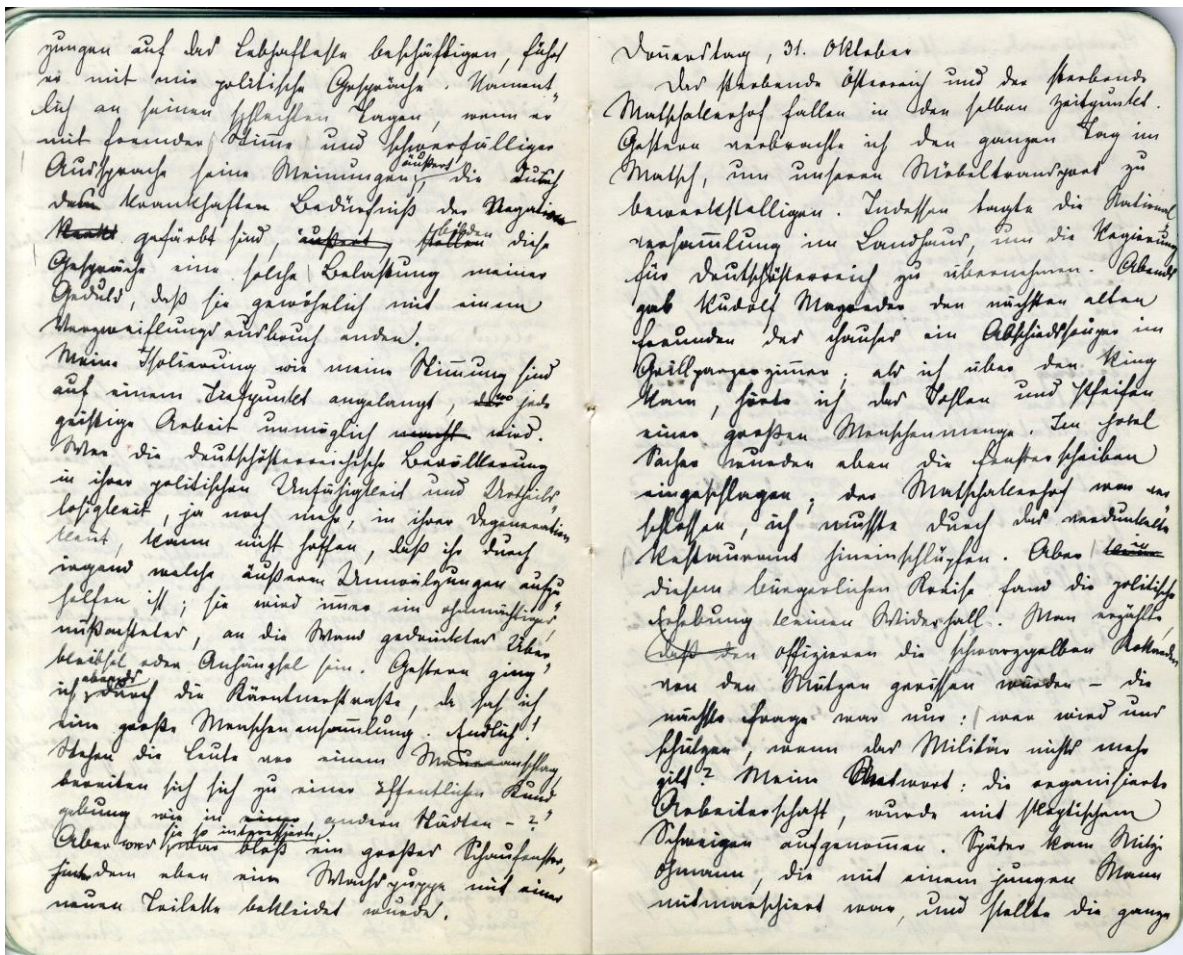 gungen auf das Lebhafteste beschäftigen, führt
er mit mir politische Gespräche. Nament-
lich an seinen schlechten Tagen, wenn er
mit fremder Stimme und schwerfälliger
Aussprache seine Meinungen äußert, die durch
dem krankhaften Bedürfniß der Negation
gefärbt sind, äußert, bilden diese
Gespräche eine solche Belastung meiner
Geduld, daß sie gewöhnlich mit einem
Verzweiflungsausbruch enden.
Meine Isolierung wie meine Stimmung sind
auf einem Tiefpunkt angelangt, wo jede
geistige Arbeit unmöglich macht wird.
Wer die deutschösterreichische Bevölkerung
in ihrer politischen Unfähigkeit und Urtheils-
losigkeit, ja noch mehr, in ihrer Degeneration
kennt, kann nicht hoffen, daß ihr durch
irgend welche äußeren Umwälzungen aufzu-
helfen ist; sie wird immer ein ohnmächtiger,
mißachteter, an die Wand gedrückter Über-
bleibsel oder Anhängsel sein. Gestern ging
ich abends durch die Kärntnerstraße, da sah ich
eine große Menschenansammlung. Endlich!
Stehen die Leute vor einem Maueranschlag,
bereiten sich sich zu einer öffentlichen Kund-
gebung wie in andern Städten – ?
Aber was sie so interessierte, war bloß ein großer Schaufenster,
hinter dem eben eine Wachspuppe mit einer
neuen Toilette bekleidet wurde.
Donnerstag, 31. Oktober
Das sterbende Österreich und der sterbende
Matschakerhof fallen in den selben Zeitpunkt.
Gestern verbrachte ich den ganzen Tag im
Matsch, um unseren Möbeltransport zu
bewerkstelligen. Indessen tagte die National-
versammlung im Landhaus, um die Regierung
für Deutschösterreich zu übernehmen. Abends
gab Rudolf Mayreder den nächsten alten
Freunden des Hauses ein Abschiedssouper im
Grillparzerzimmer; als ich über den Ring
kam, hörte ich das Johlen und Pfeifen
einer großen Menschenmenge. Im Hotel
Sacher wurden eben die Fensterscheiben
eingeschlagen; der Matschakerhof war ver-
schlossen, ich mußte durch das verdunkelte
Restaurant hineinschlüpfen. Aber in
diesem bürgerlichen Kreise fand die politische
Erhebung keinen Widerhall. Man erzählte,
daß den Offizieren die schwarzgelben Kokarden
von den Mützen gerissen wurden – die
nächste Frage war nur: wer wird uns
schützen, wenn das Militär nichts mehr
gilt? Meine Antwort: die organisierte
Arbeiterschaft, wurde mit skeptischem
Schweigen aufgenommen. Später kam Mitzi
die mit einem jungen Mann
mitmarschiert war, und stellte die ganze